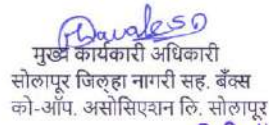 मुख्य कार्यकारी अधिकारी
सोलापूर जिल्हा नागरी सह. बँक्स
को-ऑप. असोसिएशन लि. सोलापूर